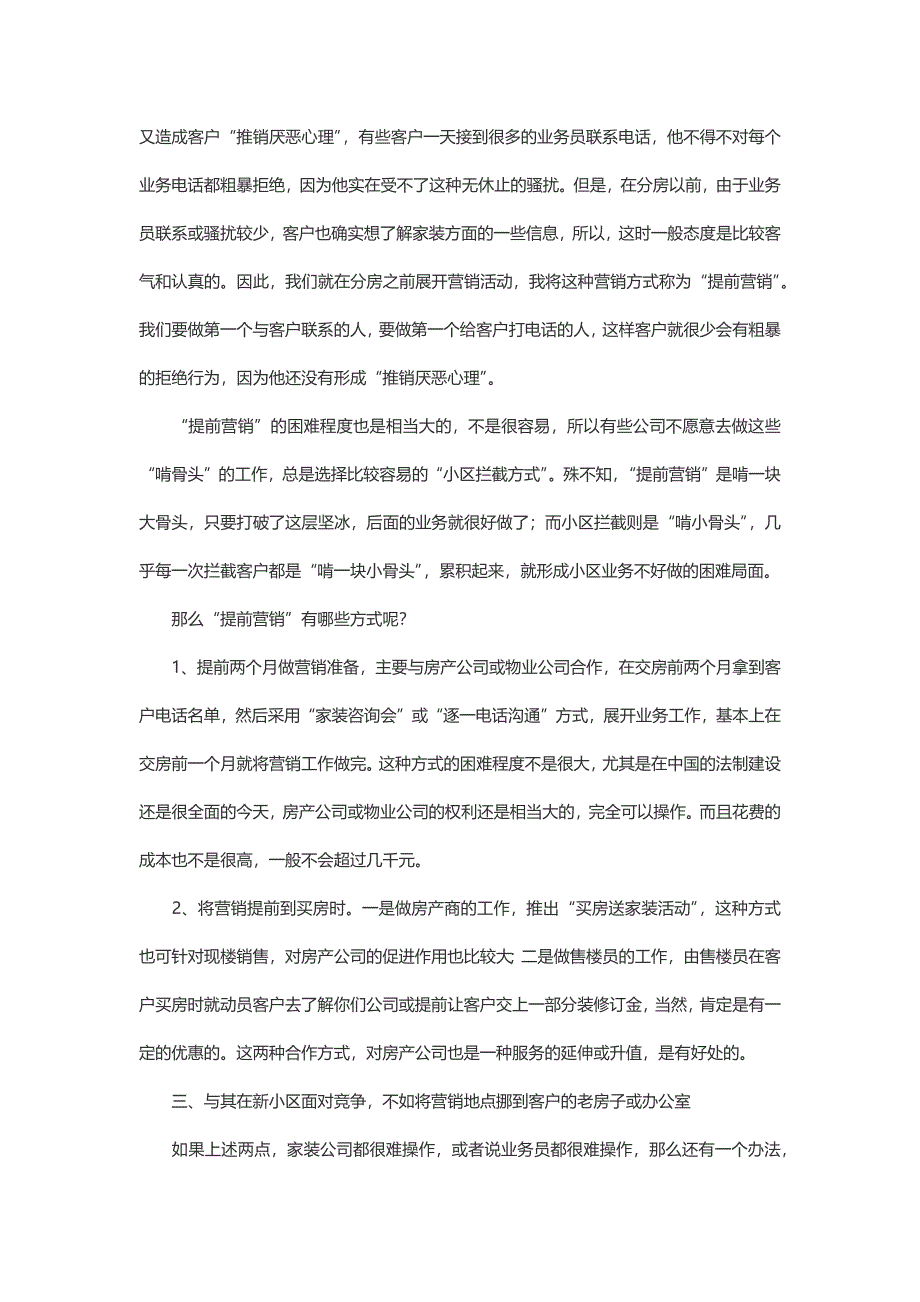 又造成客户“推销厌恶心理”，有些客户一天接到很多的业务员联系电话，他不得不对每个
业务电话都粗暴拒绝，因为他实在受不了这种无休止的骚扰。但是，在分房以前，由于业务
员联系或骚扰较少，客户也确实想了解家装方面的一些信息，所以，这时一般态度是比较客
气和认真的。因此，我们就在分房之前展开营销活动，我将这种营销方式称为“提前营销”。
我们要做第一个与客户联系的人，要做第一个给客户打电话的人，这样客户就很少会有粗暴
的拒绝行为，因为他还没有形成“推销厌恶心理”。
“提前营销”的困难程度也是相当大的，不是很容易，所以有些公司不愿意去做这些
“啃骨头”的工作，总是选择比较容易的“小区拦截方式”。殊不知，“提前营销”是啃一块
大骨头，只要打破了这层坚冰，后面的业务就很好做了；而小区拦截则是“啃小骨头”，几
乎每一次拦截客户都是“啃一块小骨头”，累积起来，就形成小区业务不好做的困难局面。
那么“提前营销”有哪些方式呢？
1、提前两个月做营销准备，主要与房产公司或物业公司合作，在交房前两个月拿到客
户电话名单，然后采用“家装咨询会”或“逐一电话沟通”方式，展开业务工作，基本上在
交房前一个月就将营销工作做完。这种方式的困难程度不是很大，尤其是在中国的法制建设
还是很全面的今天，房产公司或物业公司的权利还是相当大的，完全可以操作。而且花费的
成本也不是很高，一般不会超过几千元。
2、将营销提前到买房时。一是做房产商的工作，推出“买房送家装活动”，这种方式
也可针对现楼销售，对房产公司的促进作用也比较大；二是做售楼员的工作，由售楼员在客
户买房时就动员客户去了解你们公司或提前让客户交上一部分装修订金，当然，肯定是有一
定的优惠的。这两种合作方式，对房产公司也是一种服务的延伸或升值，是有好处的。
三、与其在新小区面对竞争，不如将营销地点挪到客户的老房子或办公室
如果上述两点，家装公司都很难操作，或者说业务员都很难操作，那么还有一个办法，